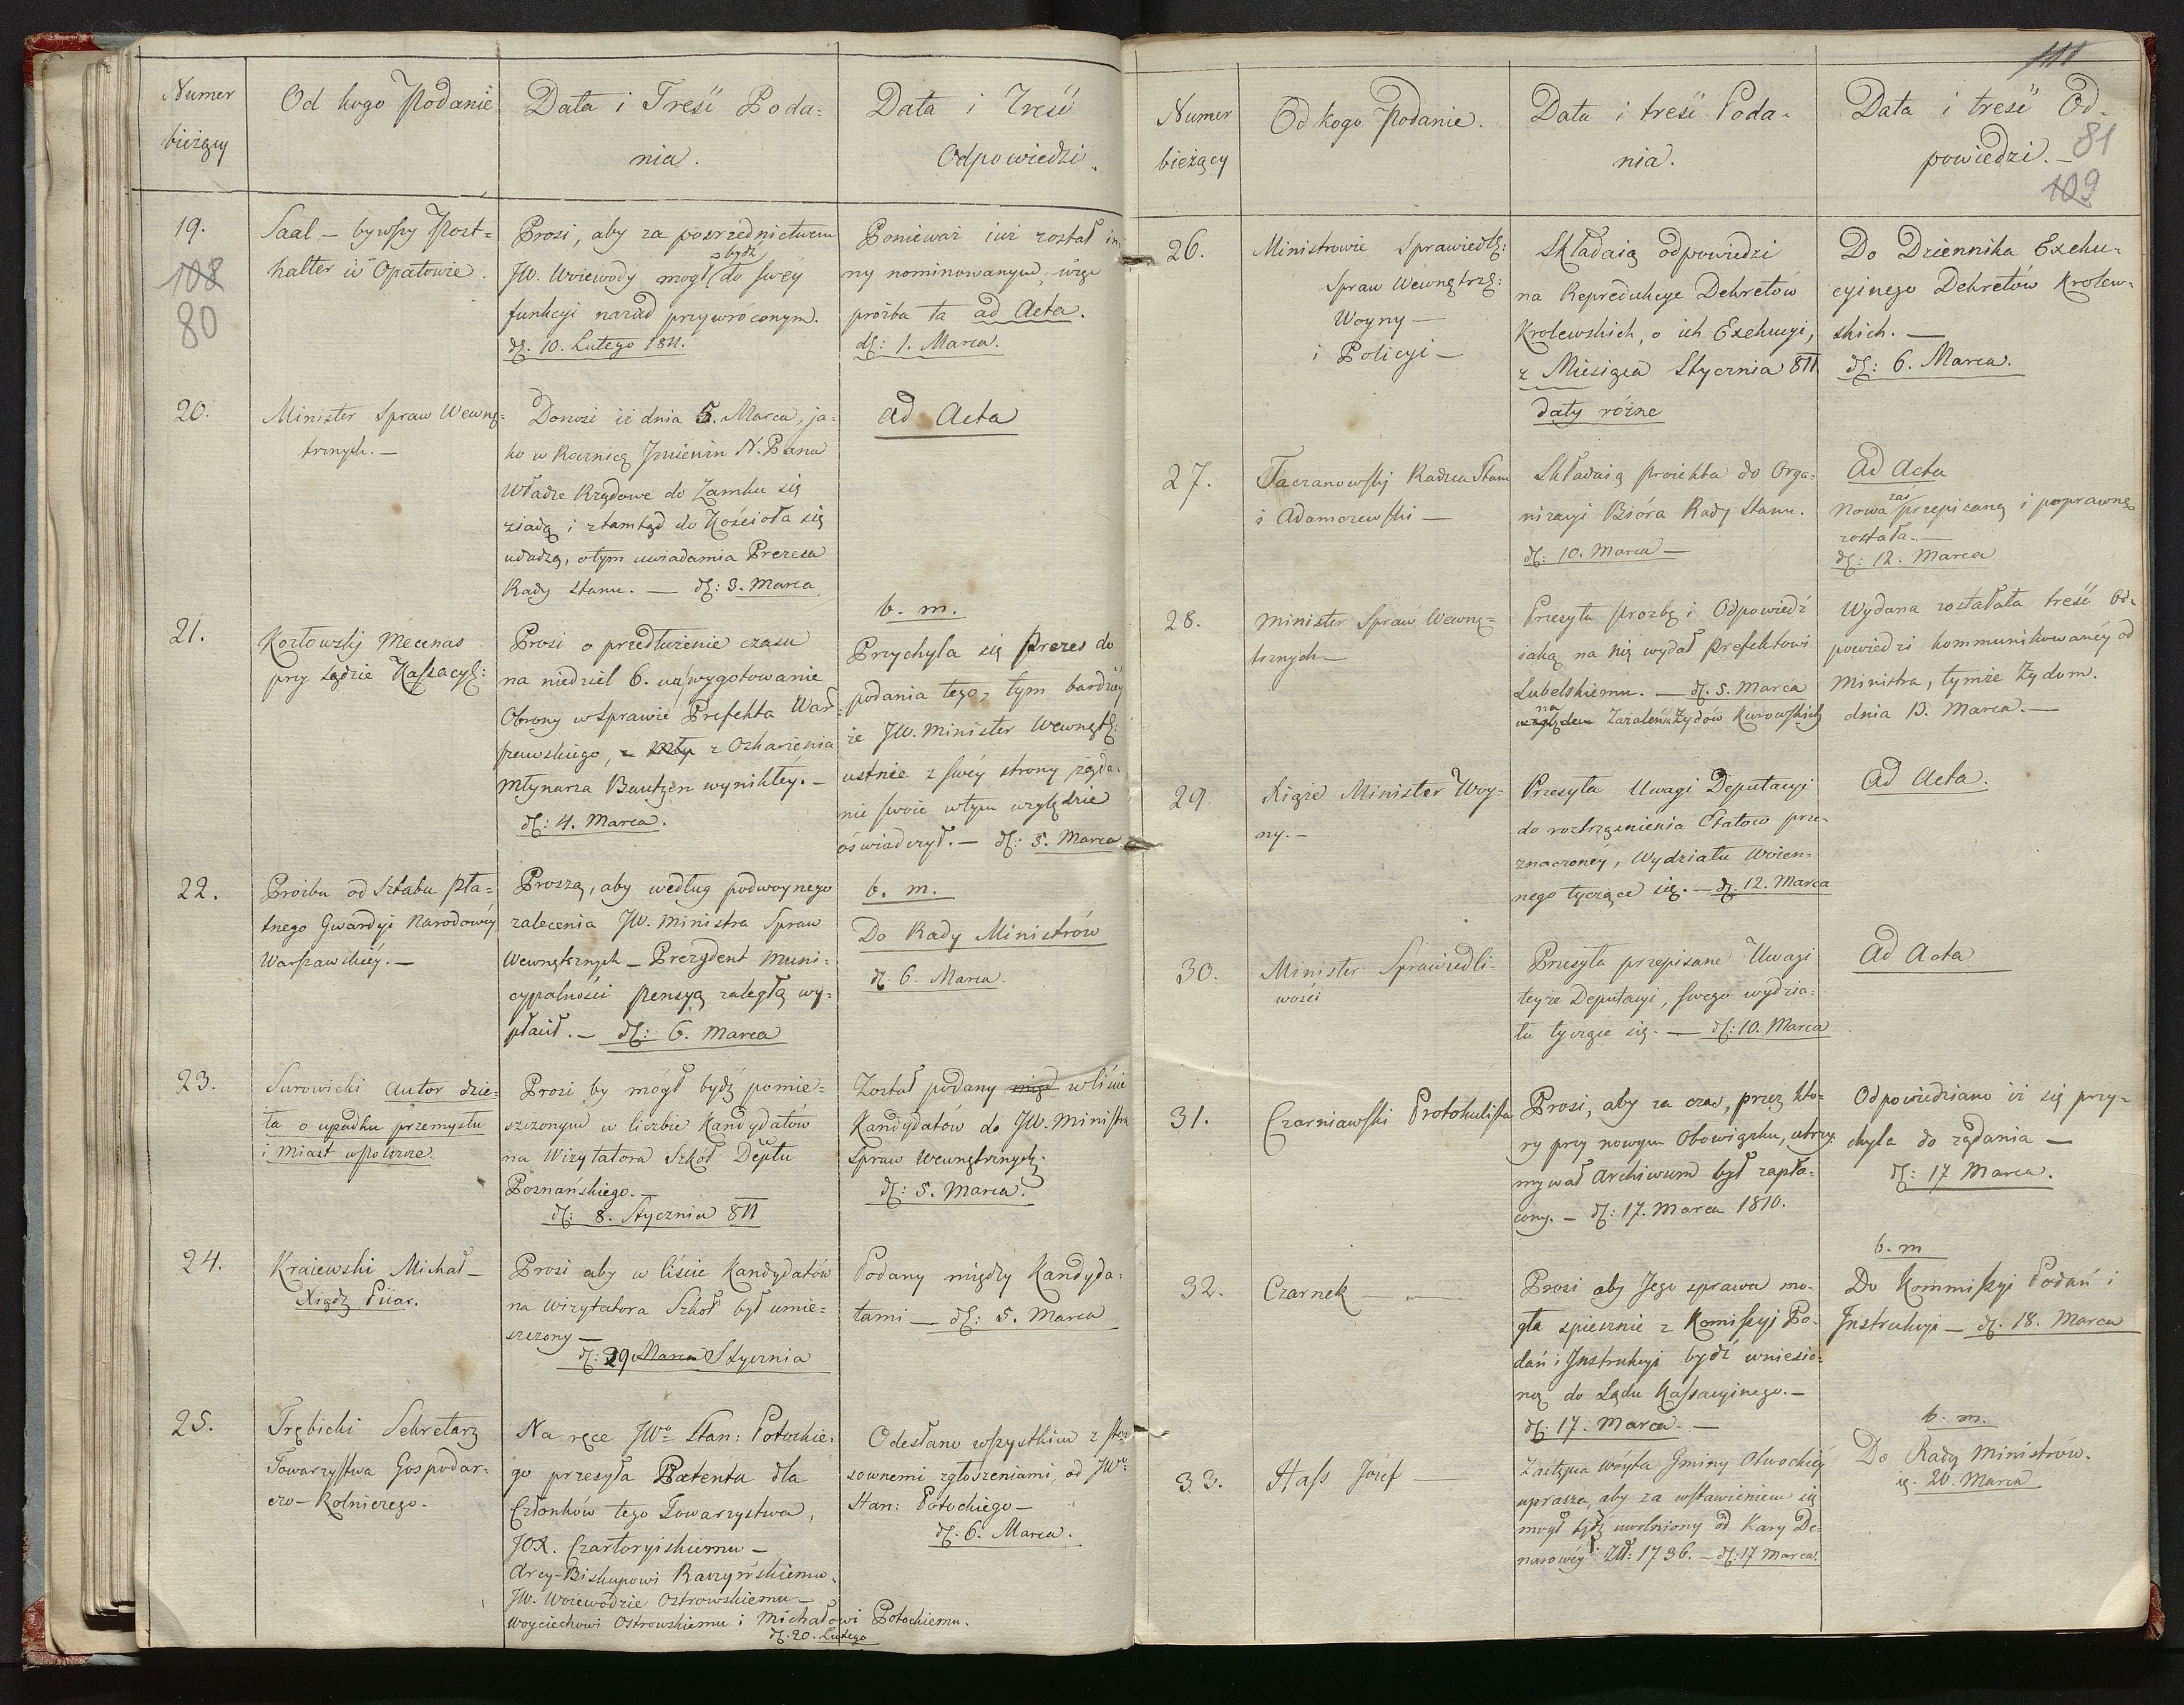 Numer
bieżący
Od kogo Podanie
Data i Treść Poda=
nia.
Data i Treść
Odpowiedzi.
19.
108
80
Saal – bywszy Post=
halter w Opatowie.
Prosi, aby za posrzednictwem
JW. Woiewody mogł bydź do swéy
funkcyi nazad przywróconym.
dł: 10. Lutego 1811.
Ponieważ iuż został in=
ny nominowanym, więc
prózba ta ad Acta.
dł: 1. Marca.
20.
Minister Spraw Wewnę=
trznych. —
Donosi iż dnia 5. Marca, ja=
ko w Rocznicę Jmienin N. Pana
Władze Rządowe do Zamku się
ziadą i ztamtąd do Kościoła się
udadzą, o tym uwiadamia Prezesa
Rady Stanu. — dł: 3. Marca
ad Acta
21.
Kozłowskj Mecenas
przy Sądzie Kassacył:
Prosi o przedłużenie czasu
na niedziel 6. na wygotowanie
Obrony w Sprawie Prefekta War=
szawskiego, z Oskarżenia
Młynarza Bautzen wynikłéy. –
dł: 4. Marca.
b. m.
Przychyla się Prezes do
podania tego, tym bardziéy
że JW. Minister Wewnętł:
ustnie z swéy strony żąda=
nie swoie w tym względzie
oświadczył. – dł: 5. Marca
22.
Proźba od Sztabu Pła=
tnego Gwardyi Narodowéy
Warszawskiéy. –
Proszą, aby według podwoynego
zalecenia JW. Ministra Spraw
Wewnętrznych – Prezydent Muni=
cypalności pensyą zaległą wy=
płacił. – dł: 6. Marca
b. m.
Do Rady Ministrów
dł: 6. Marca.
23.
Surowicki Autor dzie=
ła o upadku przemysłu
i miast w Polszcze.
Prosi by mógł bydź pomie=
szczonym w liczbie Kandydatów
na Wizytatora Szkół Deptu
Poznańskiego. –
dł: 8. Stycznia 811
Został podany w liście
Kandydatów do JW. Ministra
Spraw Wewnętrznych.
dł: 5. Marca.
24.
Kraiewski Michał –
Xiądz Piiar.
Prosi aby w liście Kandydatów
na Wizytatora Szkół był umie=
szczony —
dł: 29 Marca Stycznia
Podany między Kandyda=
tami — dł: 5. Marca
25.
Trębicki Sekretarz
Towarzystwa Gospodar=
czo-Rolniczego.
Na ręce JWo Stan: Potockie=
go przesyła Patenta dla
Członków tego Towarzystwa,
JOX. Czartoryiskiemu –
Arcy-Biskupowi Raczyńskiemu.
JW. Woiewodzie Ostrowskiemu –
Woyciechowi Ostrowskiemu i Michałowi Potockiemu.
dł. 20. Lutego
Odesłano wszystkim z sto=
sownemi zgłoszeniami, od JWo
Stan: Potockiego –
dł. 6. Marca.
111
Numer
bieżący
Od kogo Podanie.
Data i treść Poda=
nia.
Data i treść Od=
powiedzi. –
81
109
26.
Ministrowie Sprawiedł:
Spraw Wewnętrzł:
Woyny —
i Policyi —
Składaią odpowiedzi
na Reprodukcye Dekretów
Krolewskich, o ich Exekucyi,
z Miesiąca Stycznia 811
daty różne
Do Dziennika Exeku=
cyjnego Dekretów Krolew=
skich. —
dł: 6. Marca.
27.
Taczanowskj Radzca Stanu
i Adamczewski —
Składaią proiekta do Orga=
nizacyi Bióra Rady Stanu.
dł: 10. Marca —
Ad Acta
Nowa zaś przepisaną i poprawną
została. —
dł: 12. Marca
28.
Minister Spraw Wewnę=
trznych –
Przesyła prozbę i Odpowiedź
iaką na nią wydał Prefektowi
Lubelskiemu. — dł. 5. Marca
na
względem Zażaleń Żydów Kurowskich
Wydana została ta treść Od=
powiedzi kommunikowanéy od
Ministra, tymże Żydom.
dnia 13. Marca. —
29.
Xiąże Minister Woy=
ny. –
Przesyła Uwagi Deputacyi
do roztrząśnienia Etatow prze=
znaczonéy, Wydziału Woien=
nego tyczące się. – dł. 12. Marca
ad Acta.
30.
Minister Sprawiedli=
wości
Przesyła przepisane Uwagi
teyże Deputacyi, swego wydzia=
łu tyczące się. — dł: 10. Marca
Ad Acta
31.
Czarniawski Protokulista
Prosi, aby za czas, przez któ=
ry przy nowym Obowiązku, utrzy=
mywał Archiwum był zapła=
cony. – dł: 17. Marca 1810.
Odpowiedziano iż się przy=
chyla do żądania —
dł: 17 Marca.
32.
Czarnek —
Prosi aby Jego sprawa mo=
gła spiesznie z Komissyi Po=
dań i Jnstrukcyi bydź wniesio=
ną do Sądu Kassacyinego. –
dł: 17. Marca. —
b. m
Do Kommissyi Podań i
Jnstrukcyi – dł. 18. Marca
33.
Hass Józef —
Zastępca Wóyta Gminy
uprasza, aby za wstawieniem się
mogł bydź uwolniony od Kary De=
narowéy Zł: 1736. – dł: 17 Marca.
b. m.
Do Rady Ministrów.
20. Marca